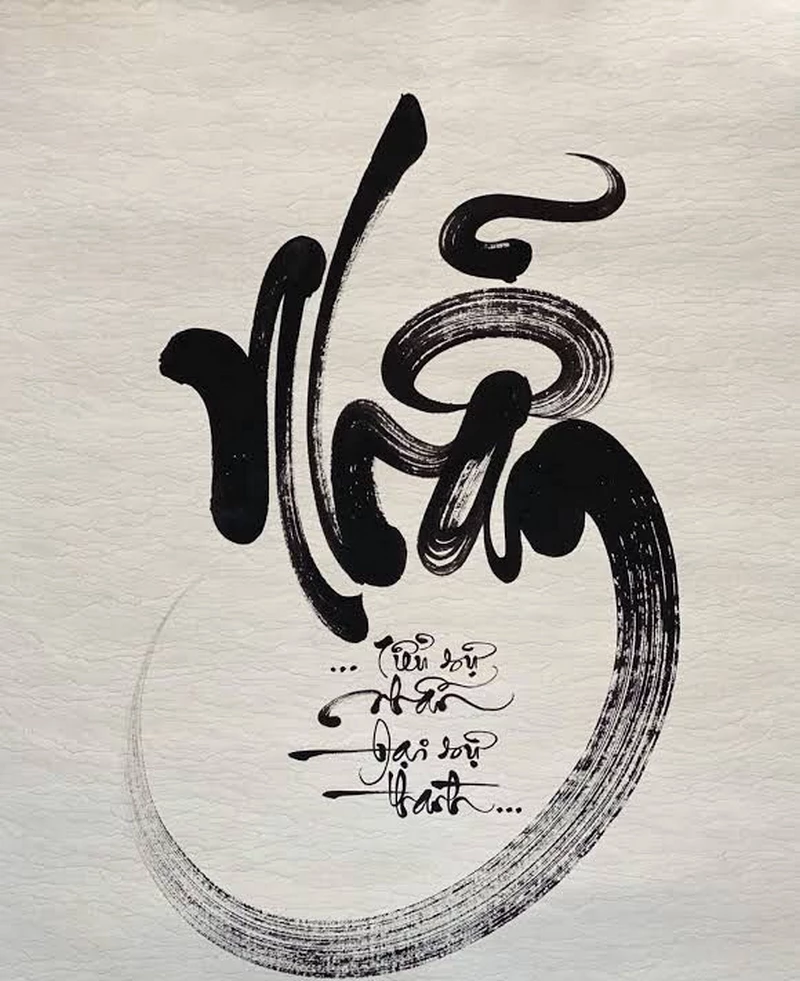 Nhẫn
... Tiểu sự
nhẫn
Đại sự
thành...